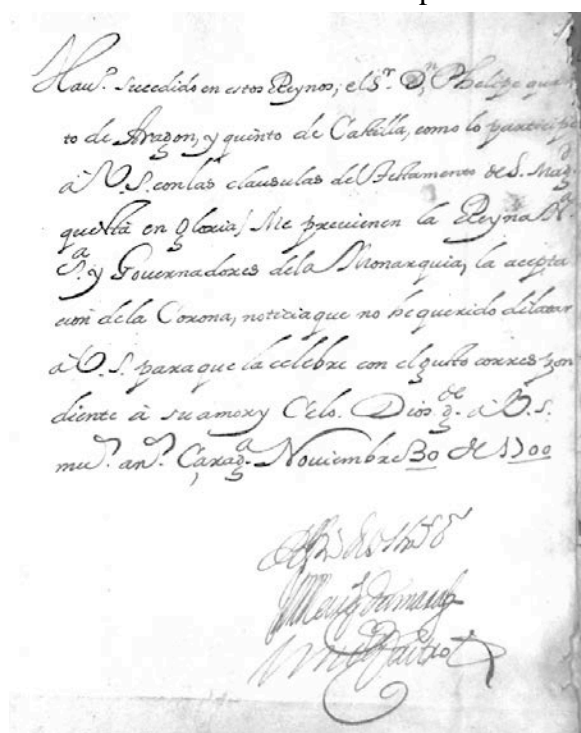 Hauᵒ. sucedido en estos Reynos, el Sʳ. Dⁿ. Phelipe quar
to de Aragon, y quinto de Castilla, como lo participe
à V.S. con las clausulas del Testamento de S. Magᵈ.
que està en gloria/ Me preuienen la Reyna Nᵃ.
Sᵃ. y Gouernadores dela Monarquia, la acepta
cion dela Corona, noticia que no he querido dilatar
à V.S. para que la celebre con el gusto correspon
diente à su amor y Celo. Dios gᵈᵉ. à V.S.
muˢ. anˢ. Çaragᵃ. Nouiembre 30 de 1700